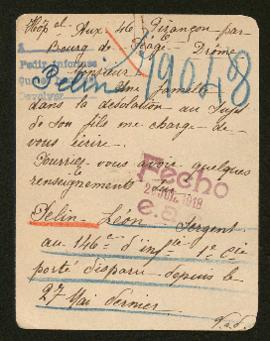 Hôpel Aux 46 Pizançon par
Bourg de Péage Drôme
Monsieur
Pelin
19048
Pedir Informes
Devolver
Une famille
dans la désolation au sujet
de son fils me charge de
vous écrire.
Pourriez vous avoir quelques
renseignements sur
Fecho
JUL. 1918
Pelin Léon Sergent
au 146e d'inftie 1e Cie
porté disparu depuis le
27 Mai dernier.